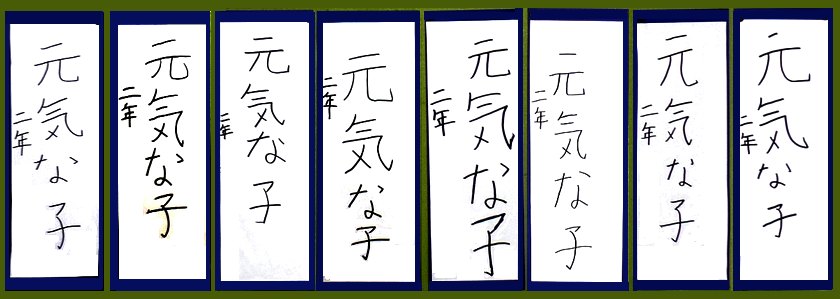 元気な子
二年
元気な子
二年
元気な子
二年
元気な子
二年
元気な子
二年
元気な子
二年
元気な子
二年
元気な子
二年